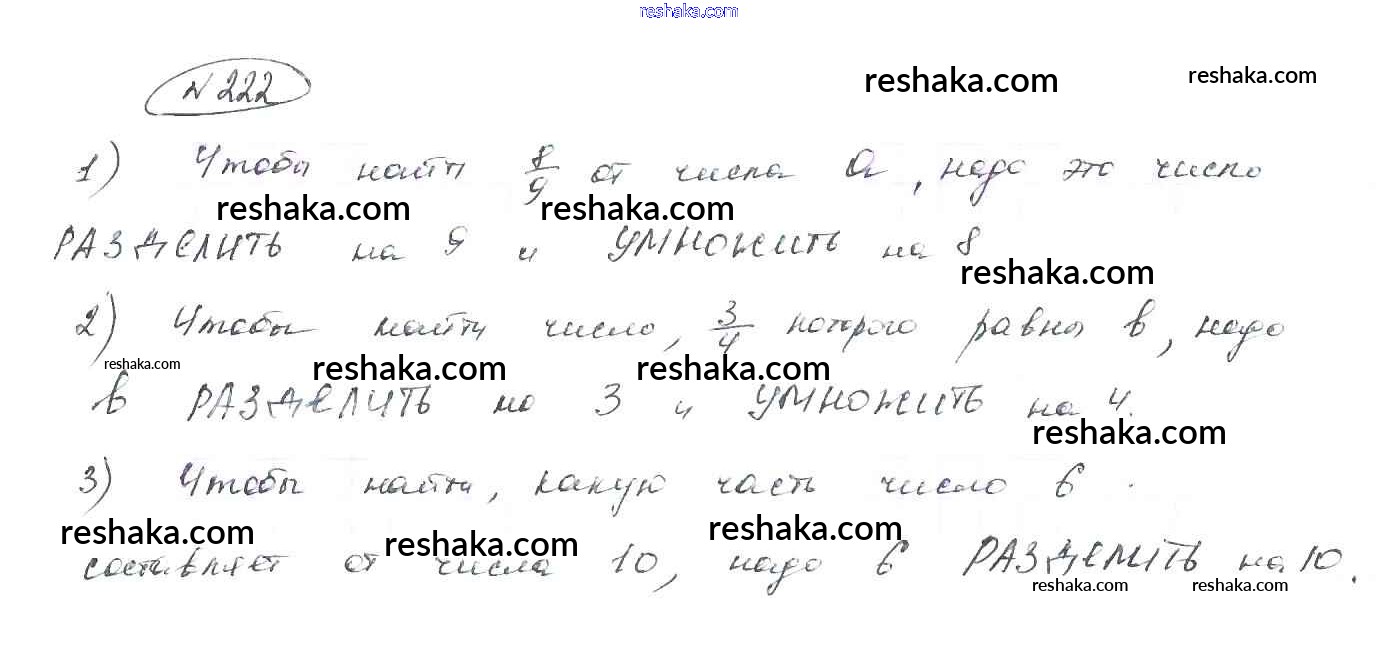 reshaka.com
№ 222
reshaka.com
reshaka.com
1) Чтобы найти 8/9 от числа a, надо это число
reshaka.com reshaka.com
РАЗДЕЛИТЬ на 9 и УМНОЖИТЬ на 8
reshaka.com
2) Чтобы найти число, 3/4 которого равны b, надо
reshaka.com reshaka.com reshaka.com
b РАЗДЕЛИТЬ на 3 и УМНОЖИТЬ на 4.
reshaka.com
3) Чтобы найти, какую часть число 6
reshaka.com reshaka.com reshaka.com
составляет от числа 10, надо 6 РАЗДЕЛИТЬ на 10.
reshaka.com reshaka.com